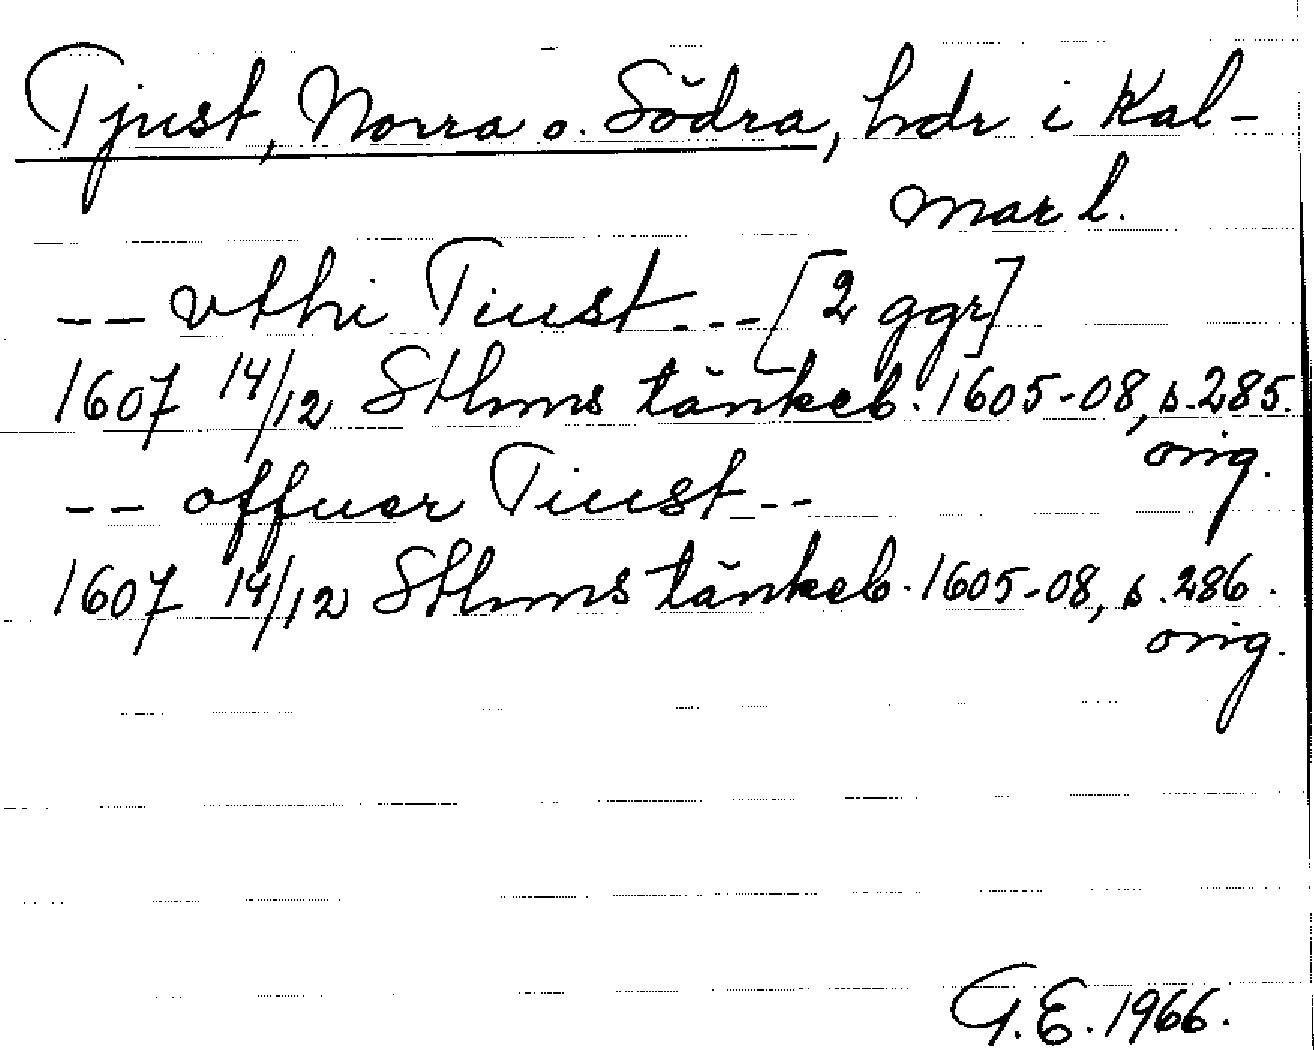 Tjust, Norra o. Södra, hdr i Kal-
mar l.
-- vthi Tiust --- [2 ggr]
1607 14/12 Sthms tänkeb. 1605-08, s. 285.
orig.
-- offuer Tiust --
1607 14/12 Sthms tänkeb. 1605-08, s. 286.
orig.
G.E. 1966.